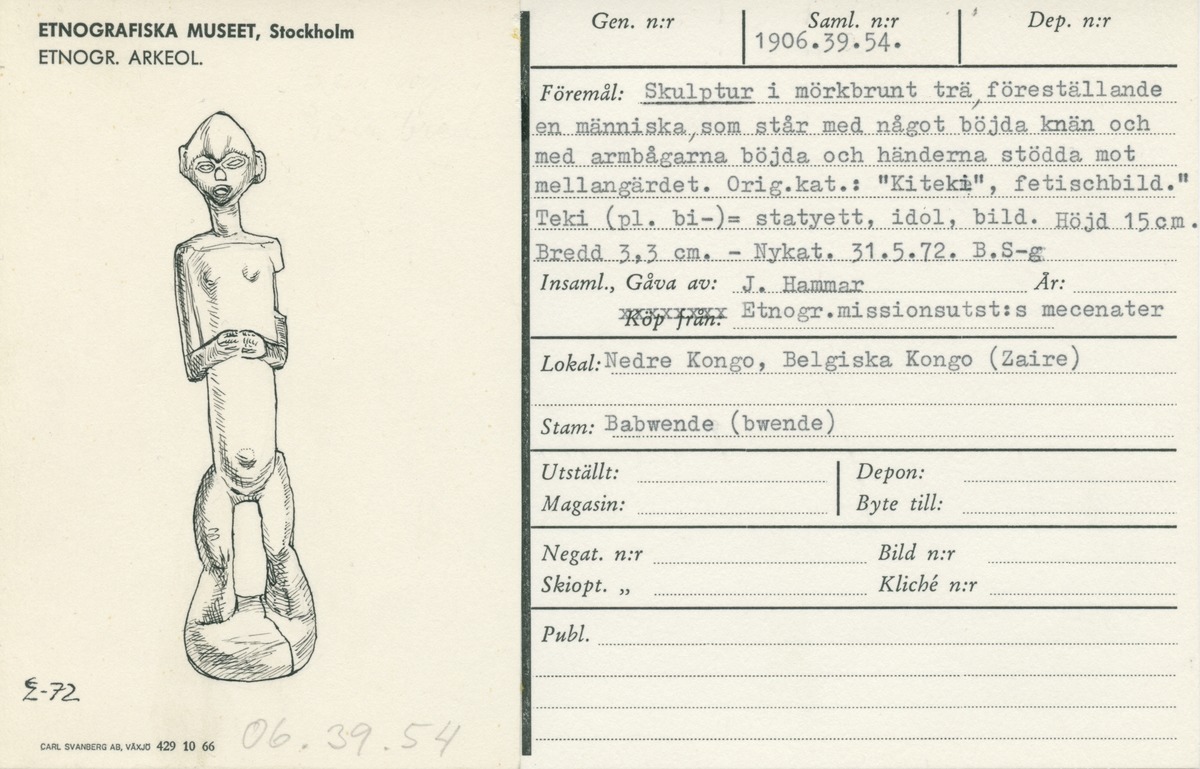 ETNOGRAFISKA MUSEET, Stockholm
ETNOGR. ARKEOL.
Σ-72
CARL SVANBERG AB, VÄXJÖ 429 10 66
06.39.54
Gen. n:r Saml. n:r Dep. n:r
1906.39.54.
Föremål: Skulptur i mörkbrunt trä, föreställande
en människa, som står med något böjda knän och
med armbågarna böjda och händerna stödda mot
mellangärdet. Orig.kat.: "Kiteki", fetischbild."
Teki (pl. bi-)= statyett, idol, bild. Höjd 15cm.
Bredd 3,3 cm. - Nykat. 31.5.72. B.S-g
Insaml., Gåva av: J. Hammar År:
Köp från: Etnogr.missionsutst:s mecenater
Lokal: Nedre Kongo, Belgiska Kongo (Zaire)
Stam: Babwende (bwende)
Utställt: Depon:
Magasin: Byte till:
Negat. n:r Bild n:r
Skiopt. „ Kliché n:r
Publ.